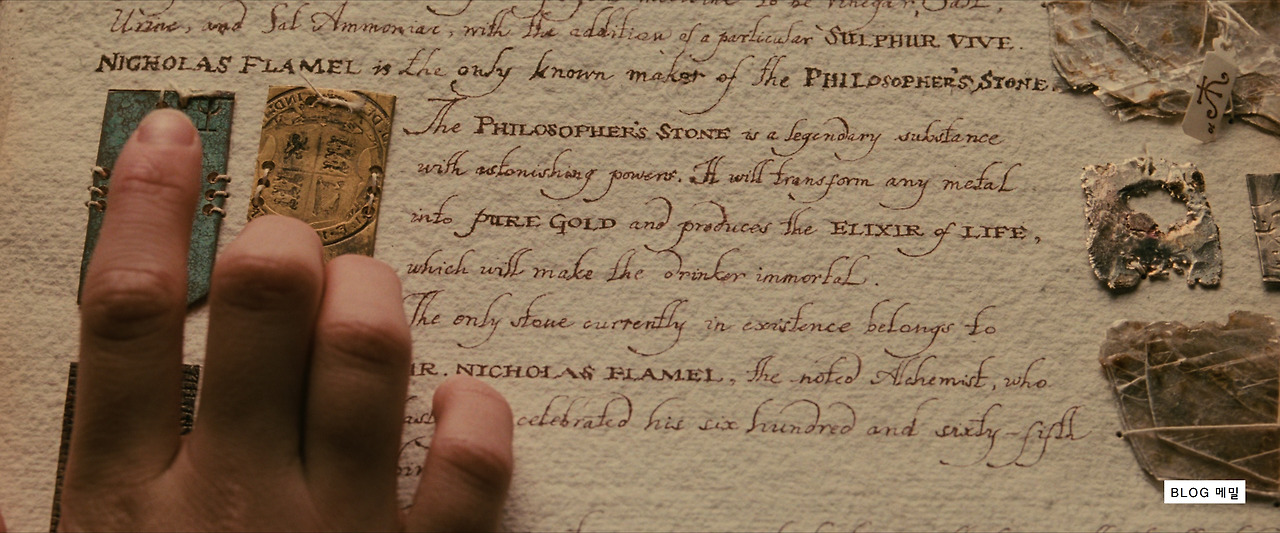 medicine to be vinegar, Salt,
Urine, and Sal Ammoniac, with the addition of a particular SULPHUR VIVE.
NICHOLAS FLAMEL is the only known maker of the PHILOSOPHER'S STONE.
The PHILOSOPHER'S STONE is a legendary substance
with astonishing powers. It will transform any metal
into PURE GOLD and produces the ELIXIR of LIFE,
which will make the drinker immortal.
The only stone currently in existence belongs to
MR. NICHOLAS FLAMEL, the noted Alchemist, who
celebrated his six hundred and sixty-fifth
BLOG 메밀